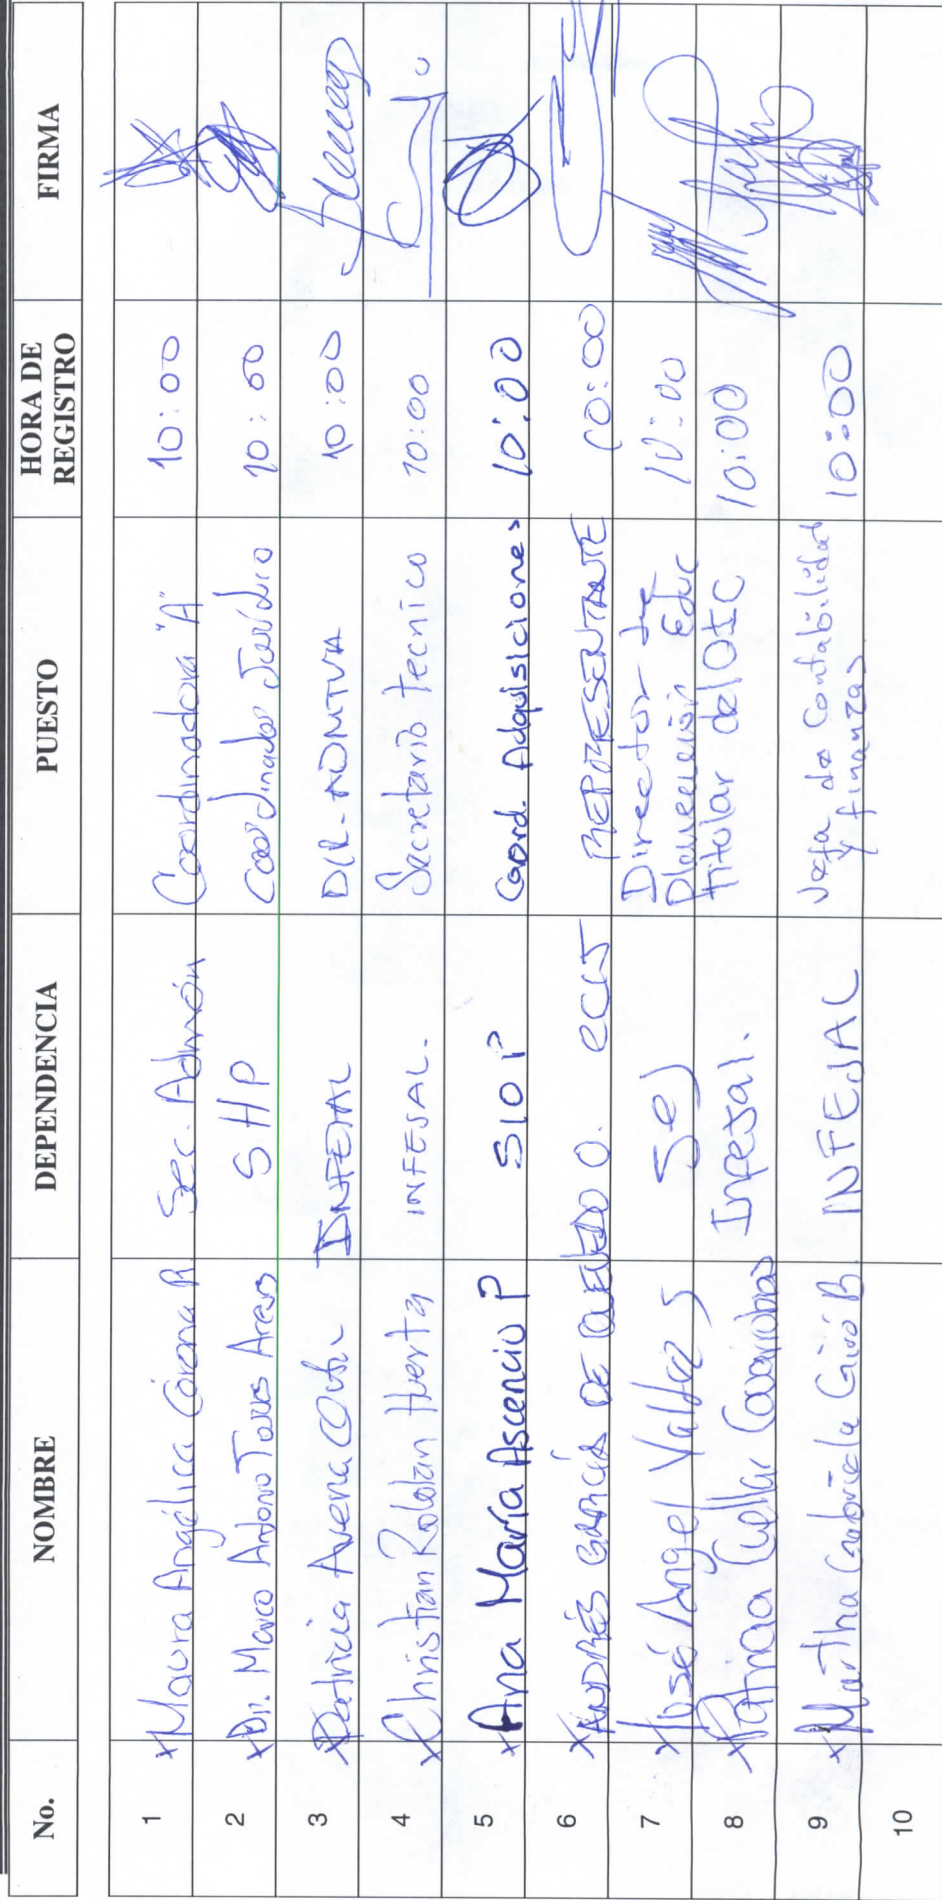 No. NOMBRE DEPENDENCIA PUESTO HORA DE REGISTRO FIRMA
1 x Maura Angélica Corona R Sec. Admón Coordinadora "A" 10:00
2 x Dr. Marco Antonio Torres Arcos SHP Coordinador Jurídico 10:00
3 x Patricia Avena INFEJAL DIR. ADMTVA 10:00
4 x Christian Roldan Huerta INFEJAL. Secretario tecnico 10:00
5 x Ana María Ascencio P SIOP Coord. Adquisiciones 10:00
6 x ANDRÉS GARCÍA DE QUEVEDO O. REPRESENTANTE 10:00
7 x José Angel Valdez S SEJ Director de
Planeación Educ 10:00
8 x Patricia Cuellar Covarrubias Infejal. Titular del OIC 10:00
9 x Martha Gabriela B INFEJAL Jefa de Contabilidad
y finanzas 10:00
10